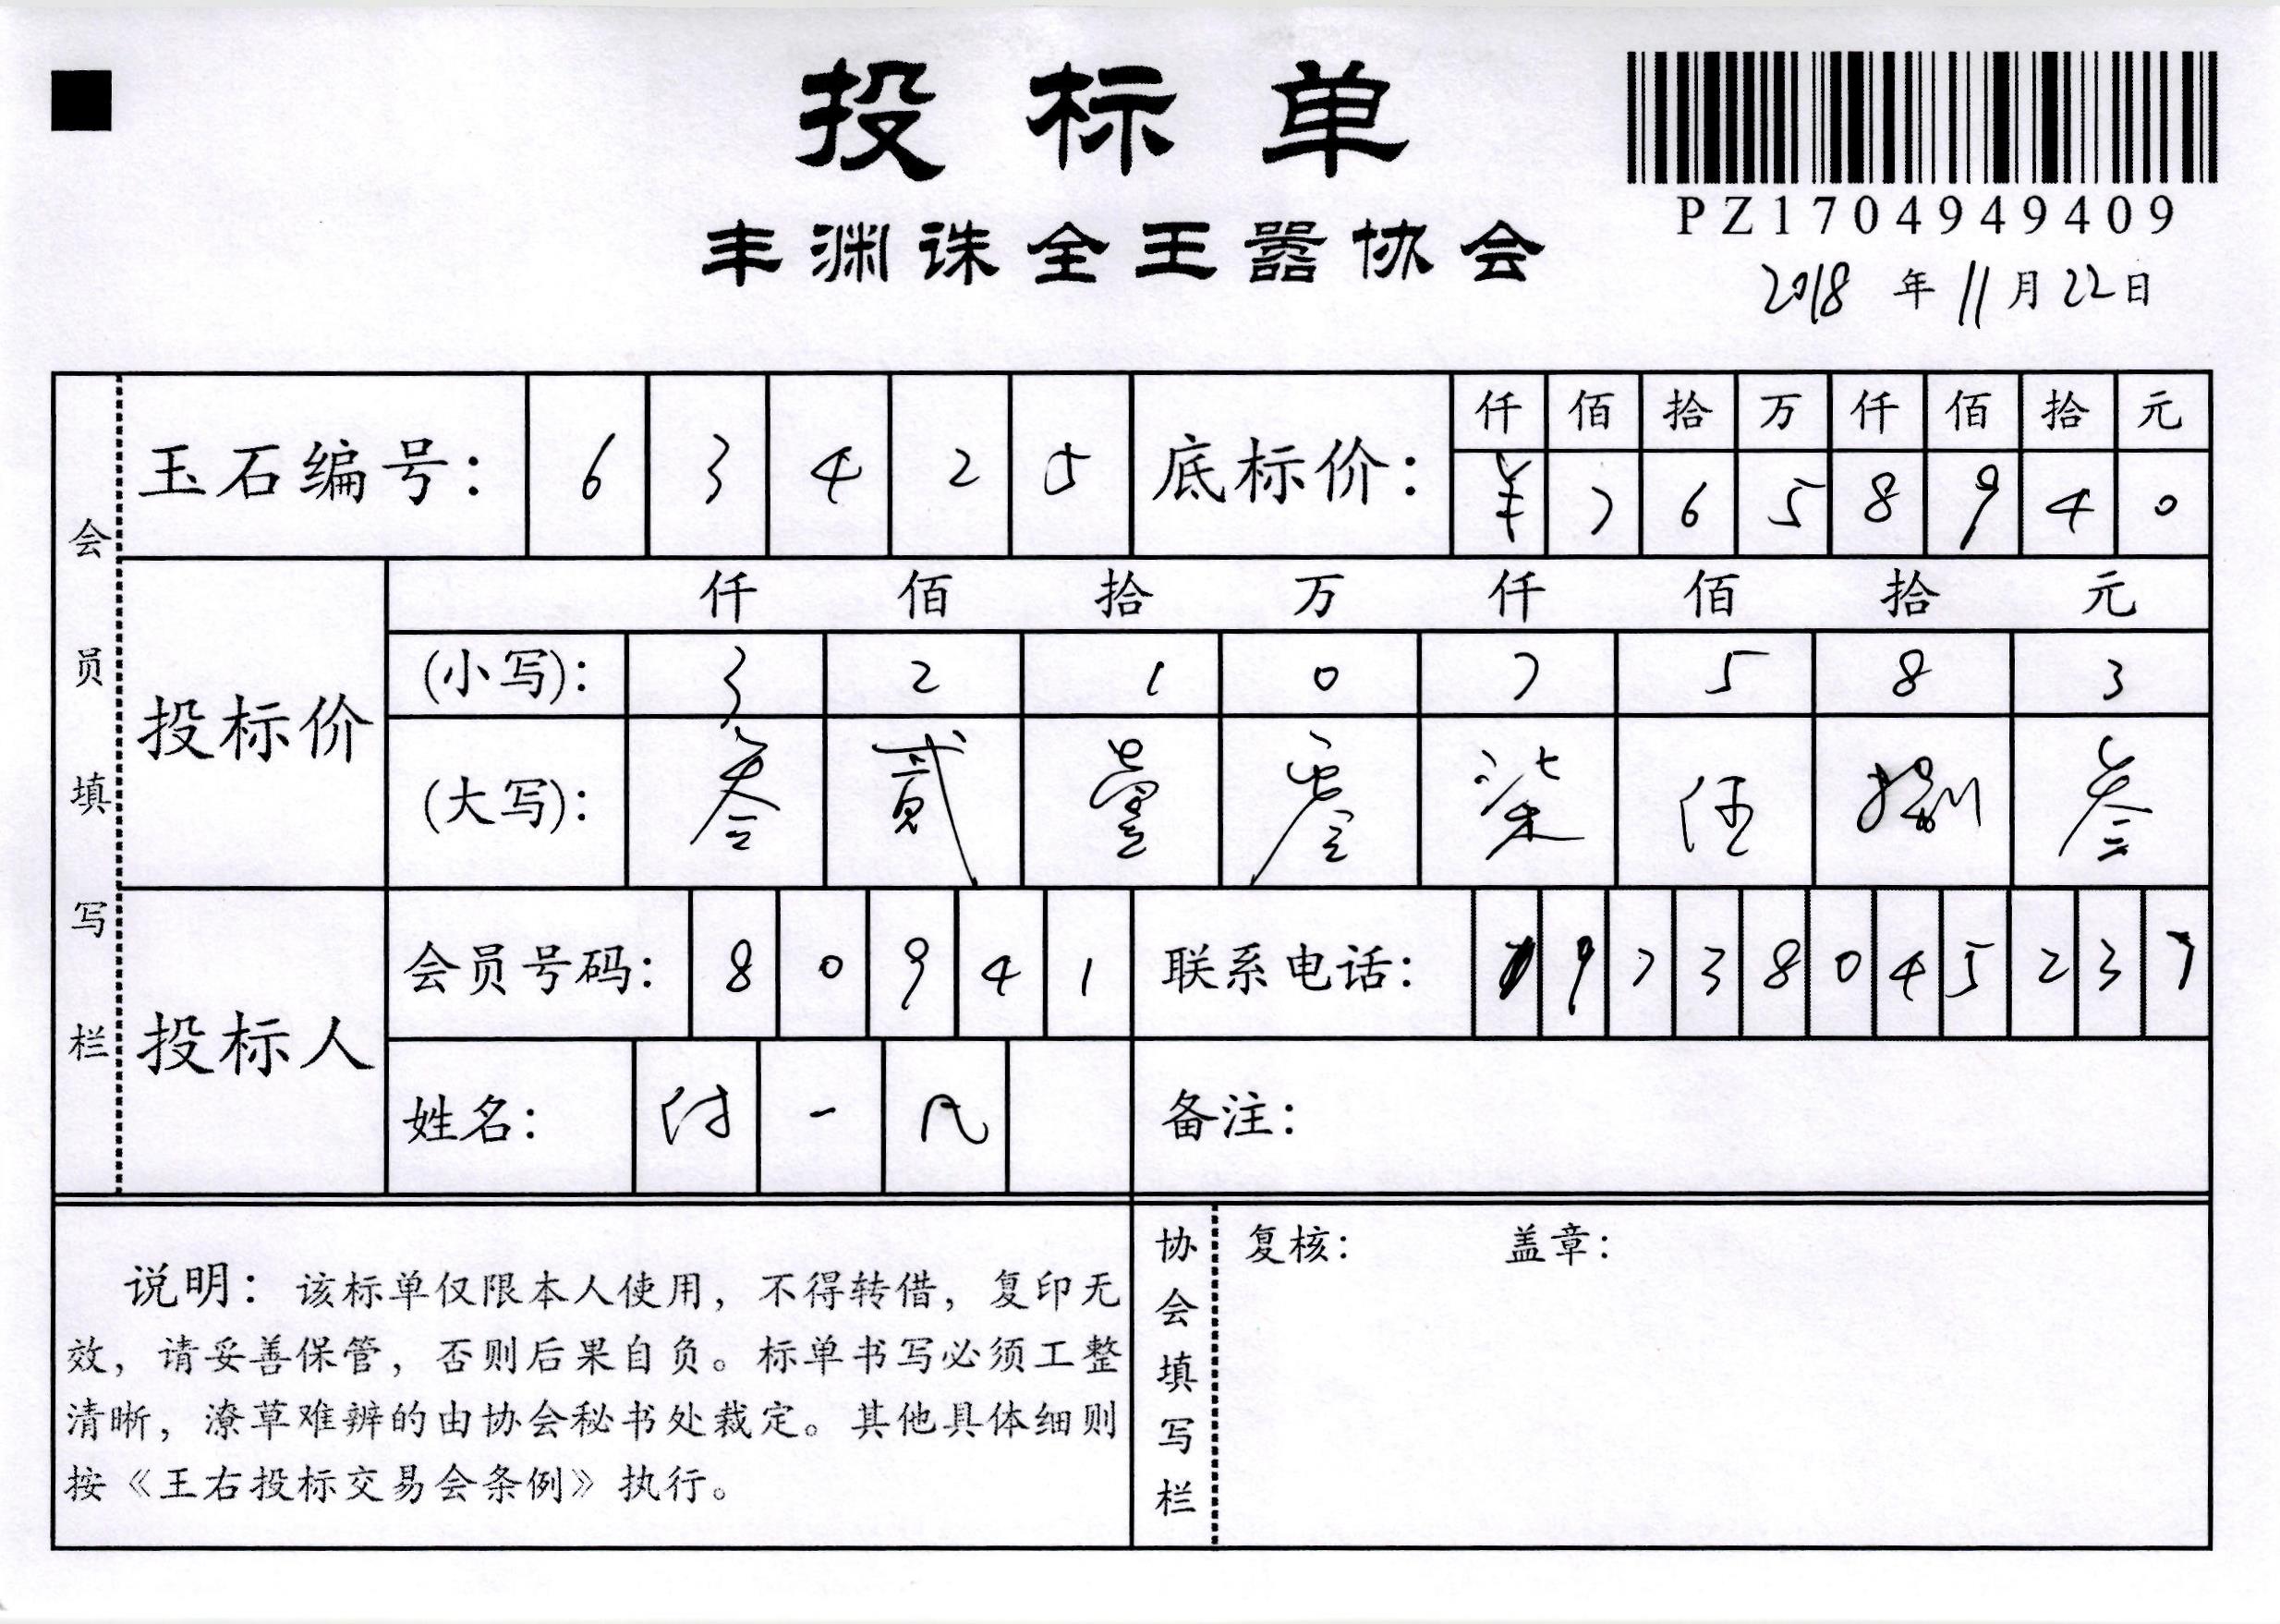 投标单
丰渊诛全王嚣协会
PZ1704949409
2018 年 11 月 22 日
会员填写栏
玉石编号： 6 3 4 2 5
底标价： 仟 佰 拾 万 仟 佰 拾 元
¥ 7 6 5 8 9 4 0
投标价
仟 佰 拾 万 仟 佰 拾 元
(小写)： 3 2 1 0 7 5 8 3
(大写)： 叁 贰 壹 零 柒 伍 捌 叁
投标人
会员号码： 8 0 9 4 1
联系电话： 1 9 7 3 8 0 4 5 2 3 7
姓名： 付 一 凡
备注：
说明：该标单仅限本人使用，不得转借，复印无
效，请妥善保管，否则后果自负。标单书写必须工整
清晰，潦草难辨的由协会秘书处裁定。其他具体细则
按《王右投标交易会条例》执行。
协会填写栏
复核： 盖章：